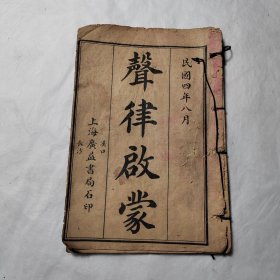 民國四年八月
聲律啟蒙
上海廣益書局石印